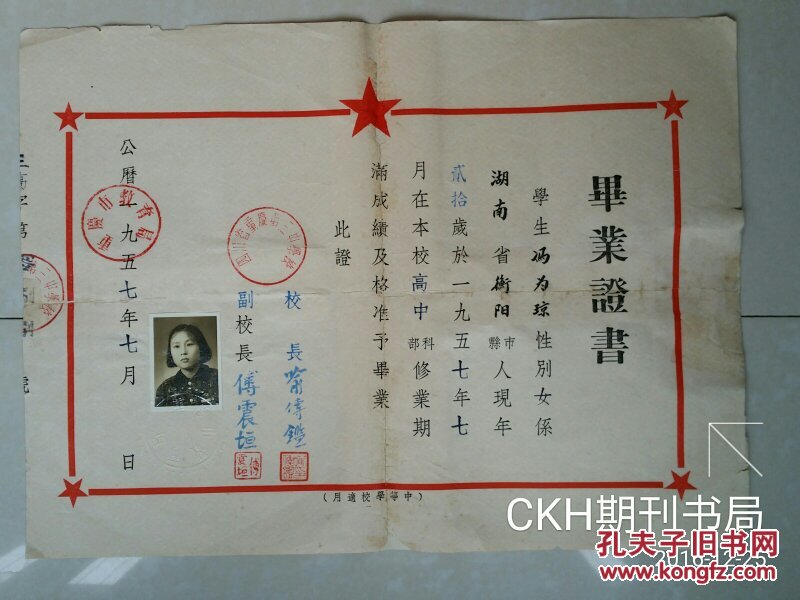 畢業證書
學生冯为琼性別女係
湖南省衡阳市縣人現年
貳拾歲於一九五七年七
月在本校高中部科修業期
滿成績及格准予畢業
此證
校長
副校長傅震垣
公曆一九五七年七月 日
重慶市教育局
(中等學校適用)
CKH期刊书局
孔夫子旧书网
www.kongfz.com